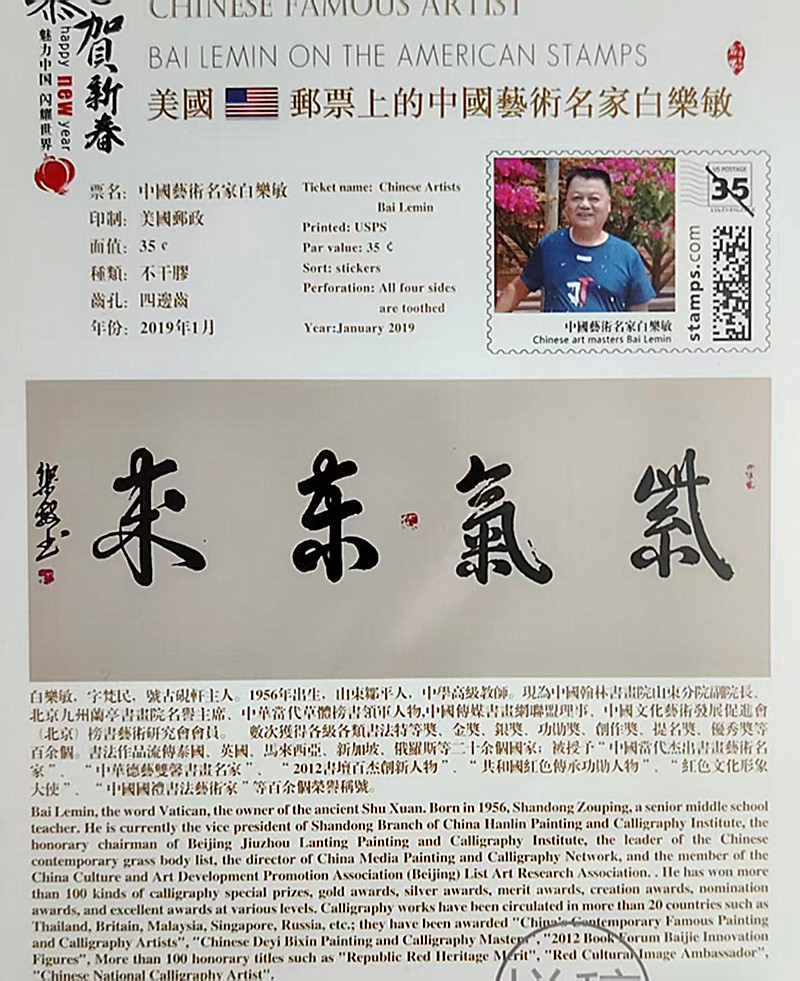 恭賀新春
happy new year
魅力中国 闪耀世界
CHINESE FAMOUS ARTIST
BAI LEMIN ON THE AMERICAN STAMPS
美國 郵票上的中國藝術名家白樂敏
票名：中國藝術名家白樂敏
印制：美國郵政
面值：35 ¢
種類：不干膠
齒孔：四邊齒
年份：2019年1月
Ticket name: Chinese Artists
Bai Lemin
Printed: USPS
Par value: 35 ¢
Sort: stickers
Perforation: All four sides
are toothed
Year:January 2019
US POSTAGE
35
stamps.com
中國藝術名家白樂敏
Chinese art masters Bai Lemin
紫氣东来
樂敏书
白樂敏，字梵民，號古硯軒主人。1956年出生，山東鄒平人，中學高級教師。現為中國翰林書畫院山東分院副院長、
北京九州蘭亭書畫院名譽主席、中華當代草體榜書領軍人物,中國傳媒書畫網聯盟理事、中國文化藝術發展促進會
（北京）榜書藝術研究會會員。 數次獲得各級各類書法特等獎、金獎、銀獎、功勛獎、創作獎、提名獎、優秀獎等
百余個。書法作品流傳泰國、英國、馬來西亞、新加坡、俄羅斯等二十余個國家；被授予“中國當代杰出書畫藝術名
家”、“中華德藝雙馨書畫名家”、“2012書壇百杰創新人物”、“共和國紅色傳承功勛人物”、“紅色文化形象
大使”、“中國國禮書法藝術家”等百余個榮譽稱號。
Bai Lemin, the word Vatican, the owner of the ancient Shu Xuan. Born in 1956, Shandong Zouping, a senior middle school
teacher. He is currently the vice president of Shandong Branch of China Hanlin Painting and Calligraphy Institute, the
honorary chairman of Beijing Jiuzhou Lanting Painting and Calligraphy Institute, the leader of the Chinese
contemporary grass body list, the director of China Media Painting and Calligraphy Network, and the member of the
China Culture and Art Development Promotion Association (Beijing) List Art Research Association. . He has won more
than 100 kinds of calligraphy special prizes, gold awards, silver awards, merit awards, creation awards, nomination
awards, and excellent awards at various levels. Calligraphy works have been circulated in more than 20 countries such as
Thailand, Britain, Malaysia, Singapore, Russia, etc.; they have been awarded "China's Contemporary Famous Painting
and Calligraphy Artists", "Chinese Deyi Bixin Painting and Calligraphy Master", "2012 Book Forum Baijie Innovation
Figures", More than 100 honorary titles such as "Republic Red Heritage Merit", "Red Cultural Image Ambassador",
"Chinese National Calligraphy Artist".